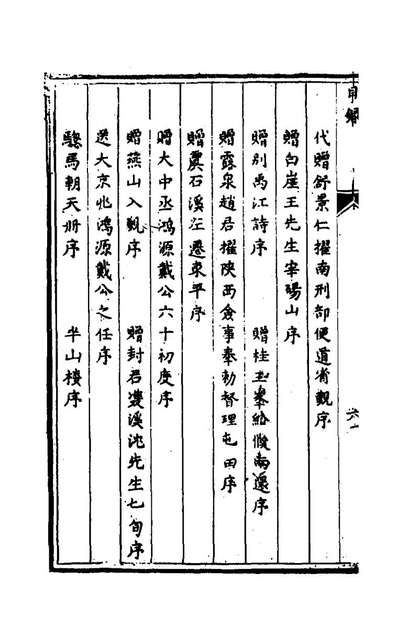 代贈舒景仁擢南刑部便道省覲序
贈白崖王先生宰陽山序
贈別禹江詩序　贈桂玉峯給假南還序
贈露泉趙君擢陝西僉事奉勑督理屯田序
贈虞石溪左遷東平序
贈大中丞鴻源戴公六十初度序
贈燕山入覲序　贈封君雙溪沈先生七旬序
送大京兆鴻源戴公之任序
驄馬朝天册序　半山樓序